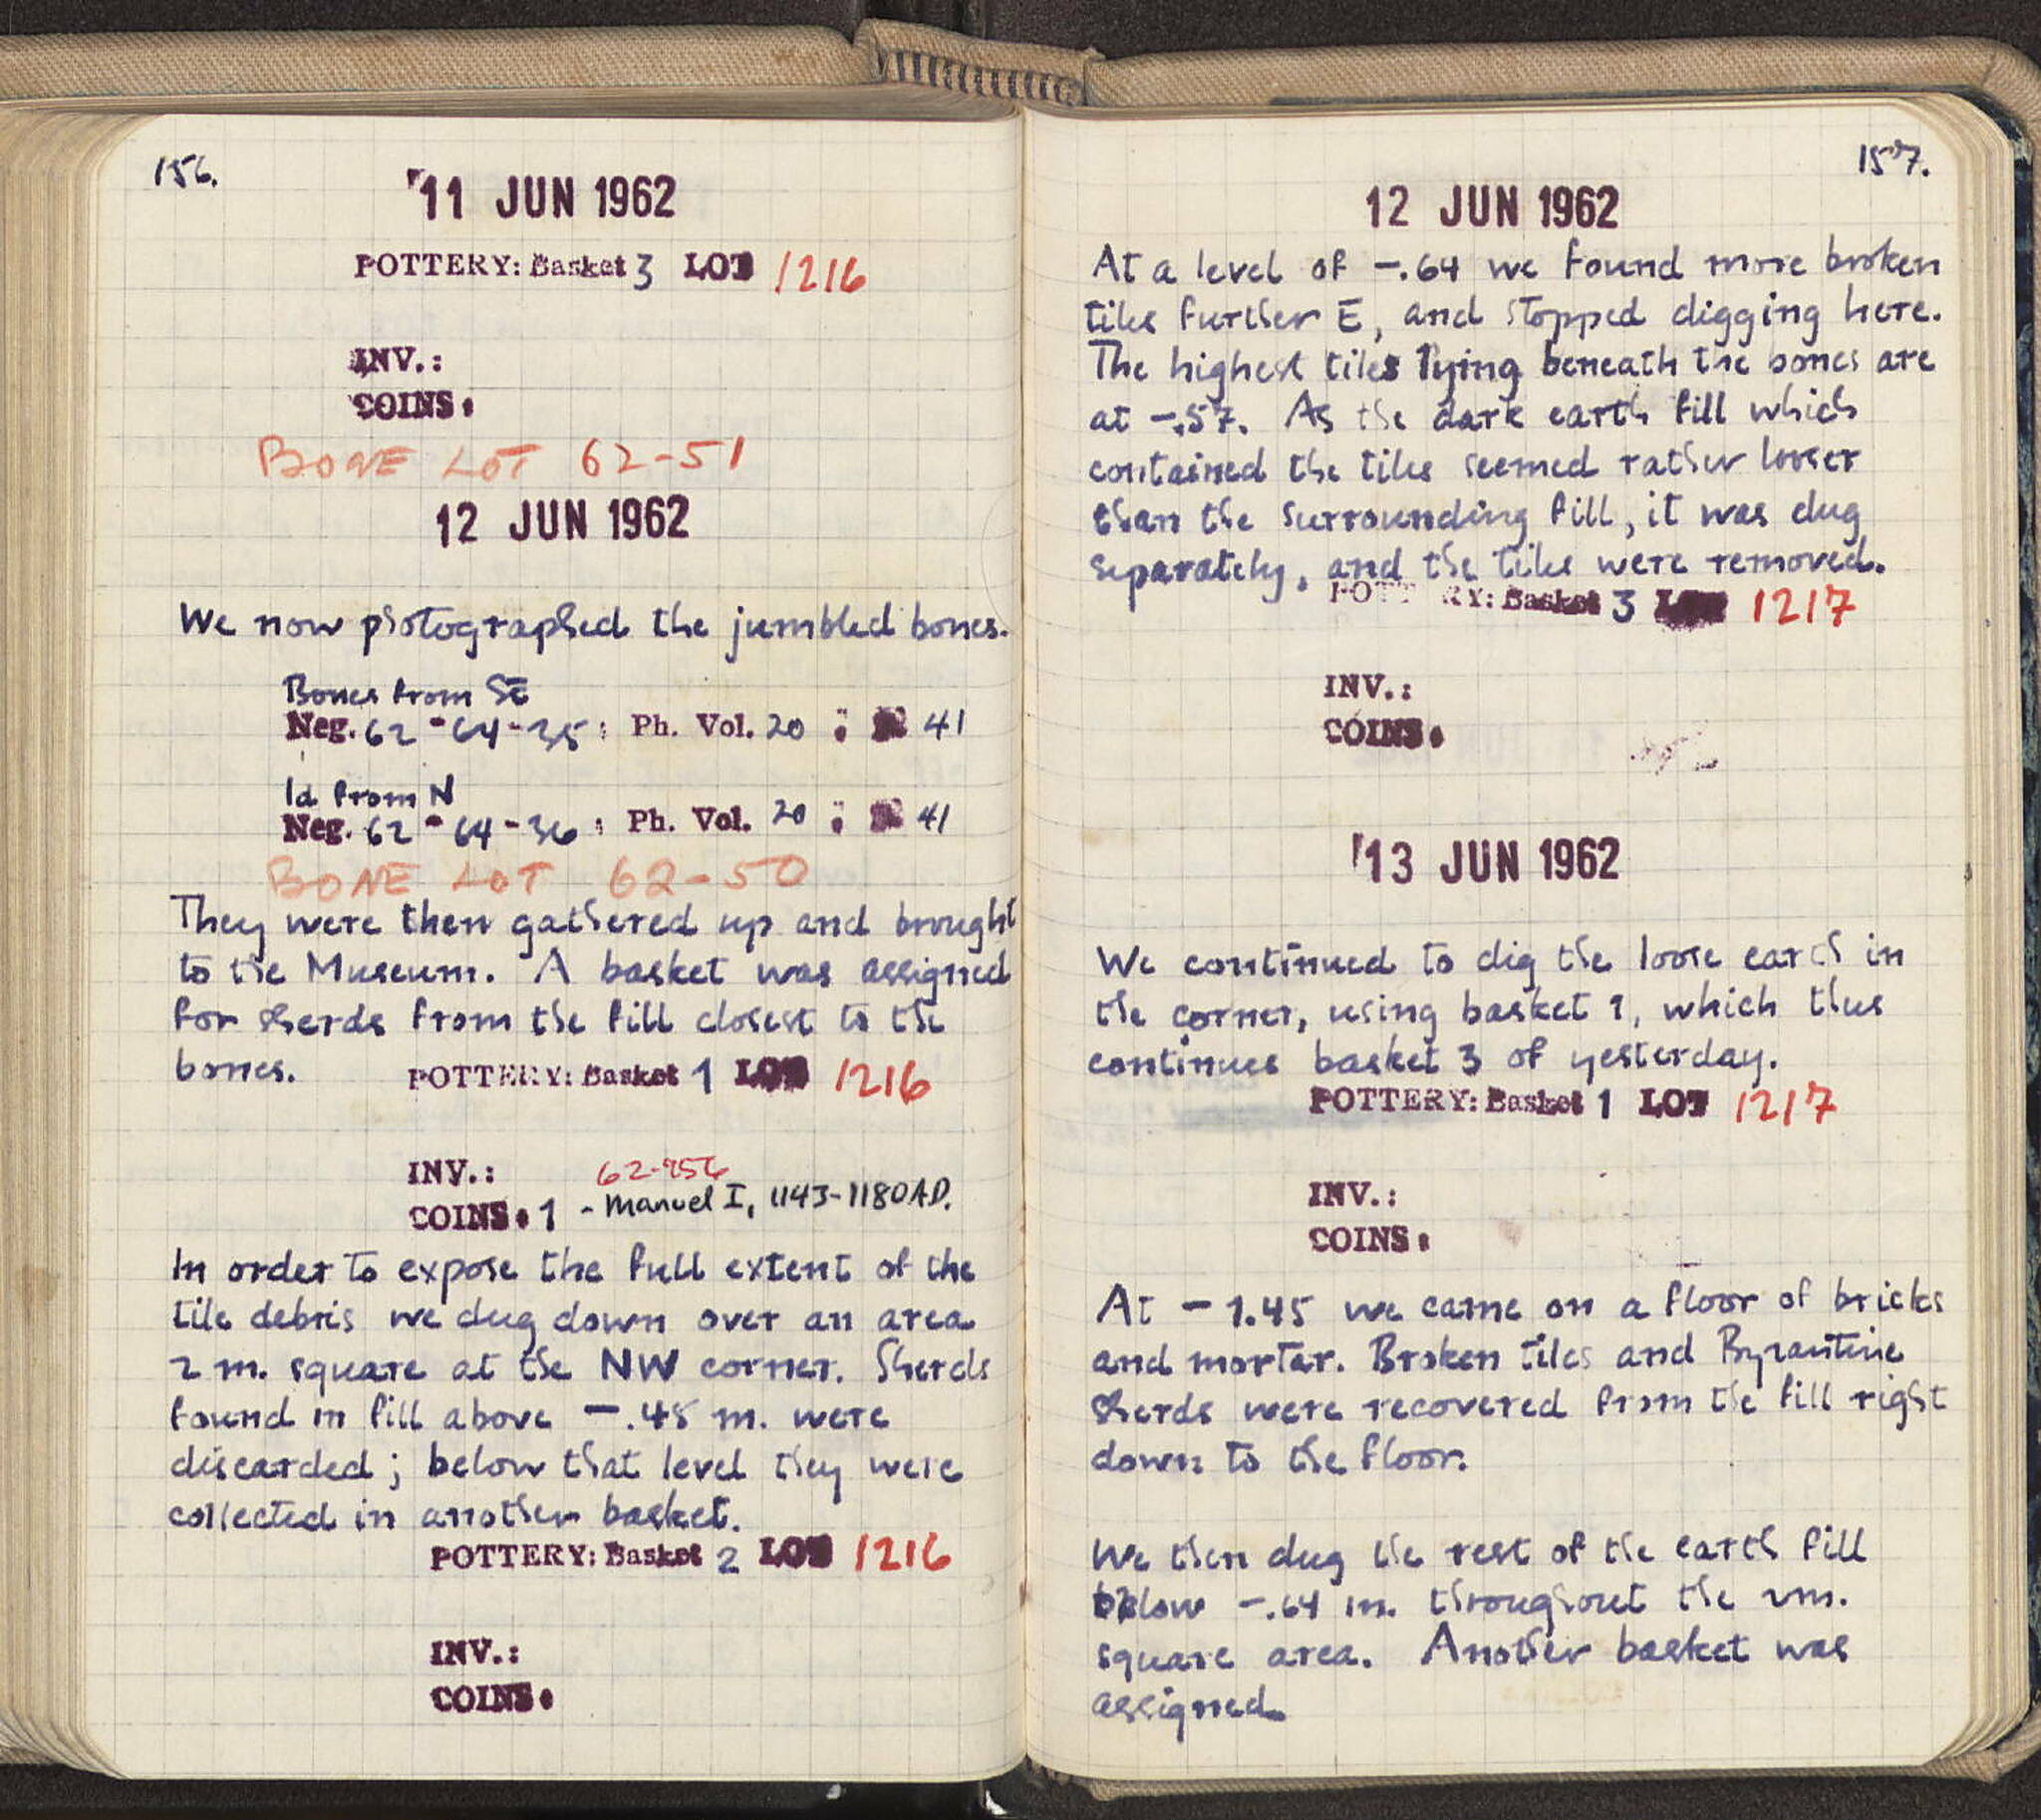 156.
11 JUN 1962
POTTERY: Basket 3 LOT 1216
INV.:
COINS:
BONE LOT 62-51
12 JUN 1962
We now photographed the jumbled bones.
Bones from SE
Neg. 62-64-35; Ph. Vol. 20 : 41
Id from N
Neg. 62-64-36; Ph. Vol. 20 : 41
BONE LOT 62-50
They were then gathered up and brought
to the Museum. A basket was assigned
for sherds from the fill closest to the
bones. POTTERY: Basket 1 LOT 1216
INV.:
COINS: 1 - Manuel I, 1143-1180 A.D.
In order to expose the full extent of the
tile debris we dug down over an area
2 m. square at the NW corner. Sherds
found in fill above -.48 m. were
discarded; below that level they were
collected in another basket.
POTTERY: Basket 2 LOT 1216
INV.:
COINS:
157.
12 JUN 1962
At a level of -.64 we found more broken
tiles further E, and stopped digging here.
The highest tiles lying beneath the bones are
at -.57. As the dark earth fill which
contained the tiles seemed rather looser
than the surrounding fill, it was dug
separately, and the tiles were removed.
POTTERY: Basket 3 LOT 1217
INV.:
COINS:
13 JUN 1962
We continued to dig the loose earth in
the corner, using basket 1, which thus
continues basket 3 of yesterday.
POTTERY: Basket 1 LOT 1217
INV.:
COINS:
At -1.45 we came on a floor of bricks
and mortar. Broken tiles and Byzantine
sherds were recovered from the fill right
down to the floor.
We then dug the rest of the earth fill
below -.64 m. throughout the 2m.
square area. Another basket was
assigned.